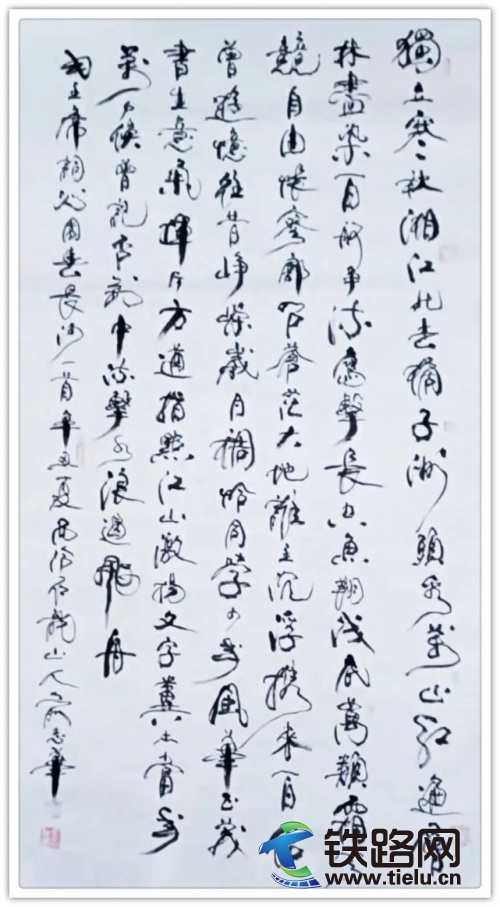 獨立寒秋湘江北去橘子洲頭看萬山紅遍層
林盡染百舸爭流鷹擊長空魚翔淺底萬類霜天
競自由悵寥廓問蒼茫大地誰主沉浮携來百侣
曾遊憶往昔崢嶸歲月稠恰同學少年風華正茂
書生意氣揮斥方遒指點江山激揚文字糞土當年
萬户侯曾記否到中流擊水浪遏飛舟
毛主席詞沁園春長沙一首辛丑夏 龍山人 志華
铁路网
www.tielu.cn